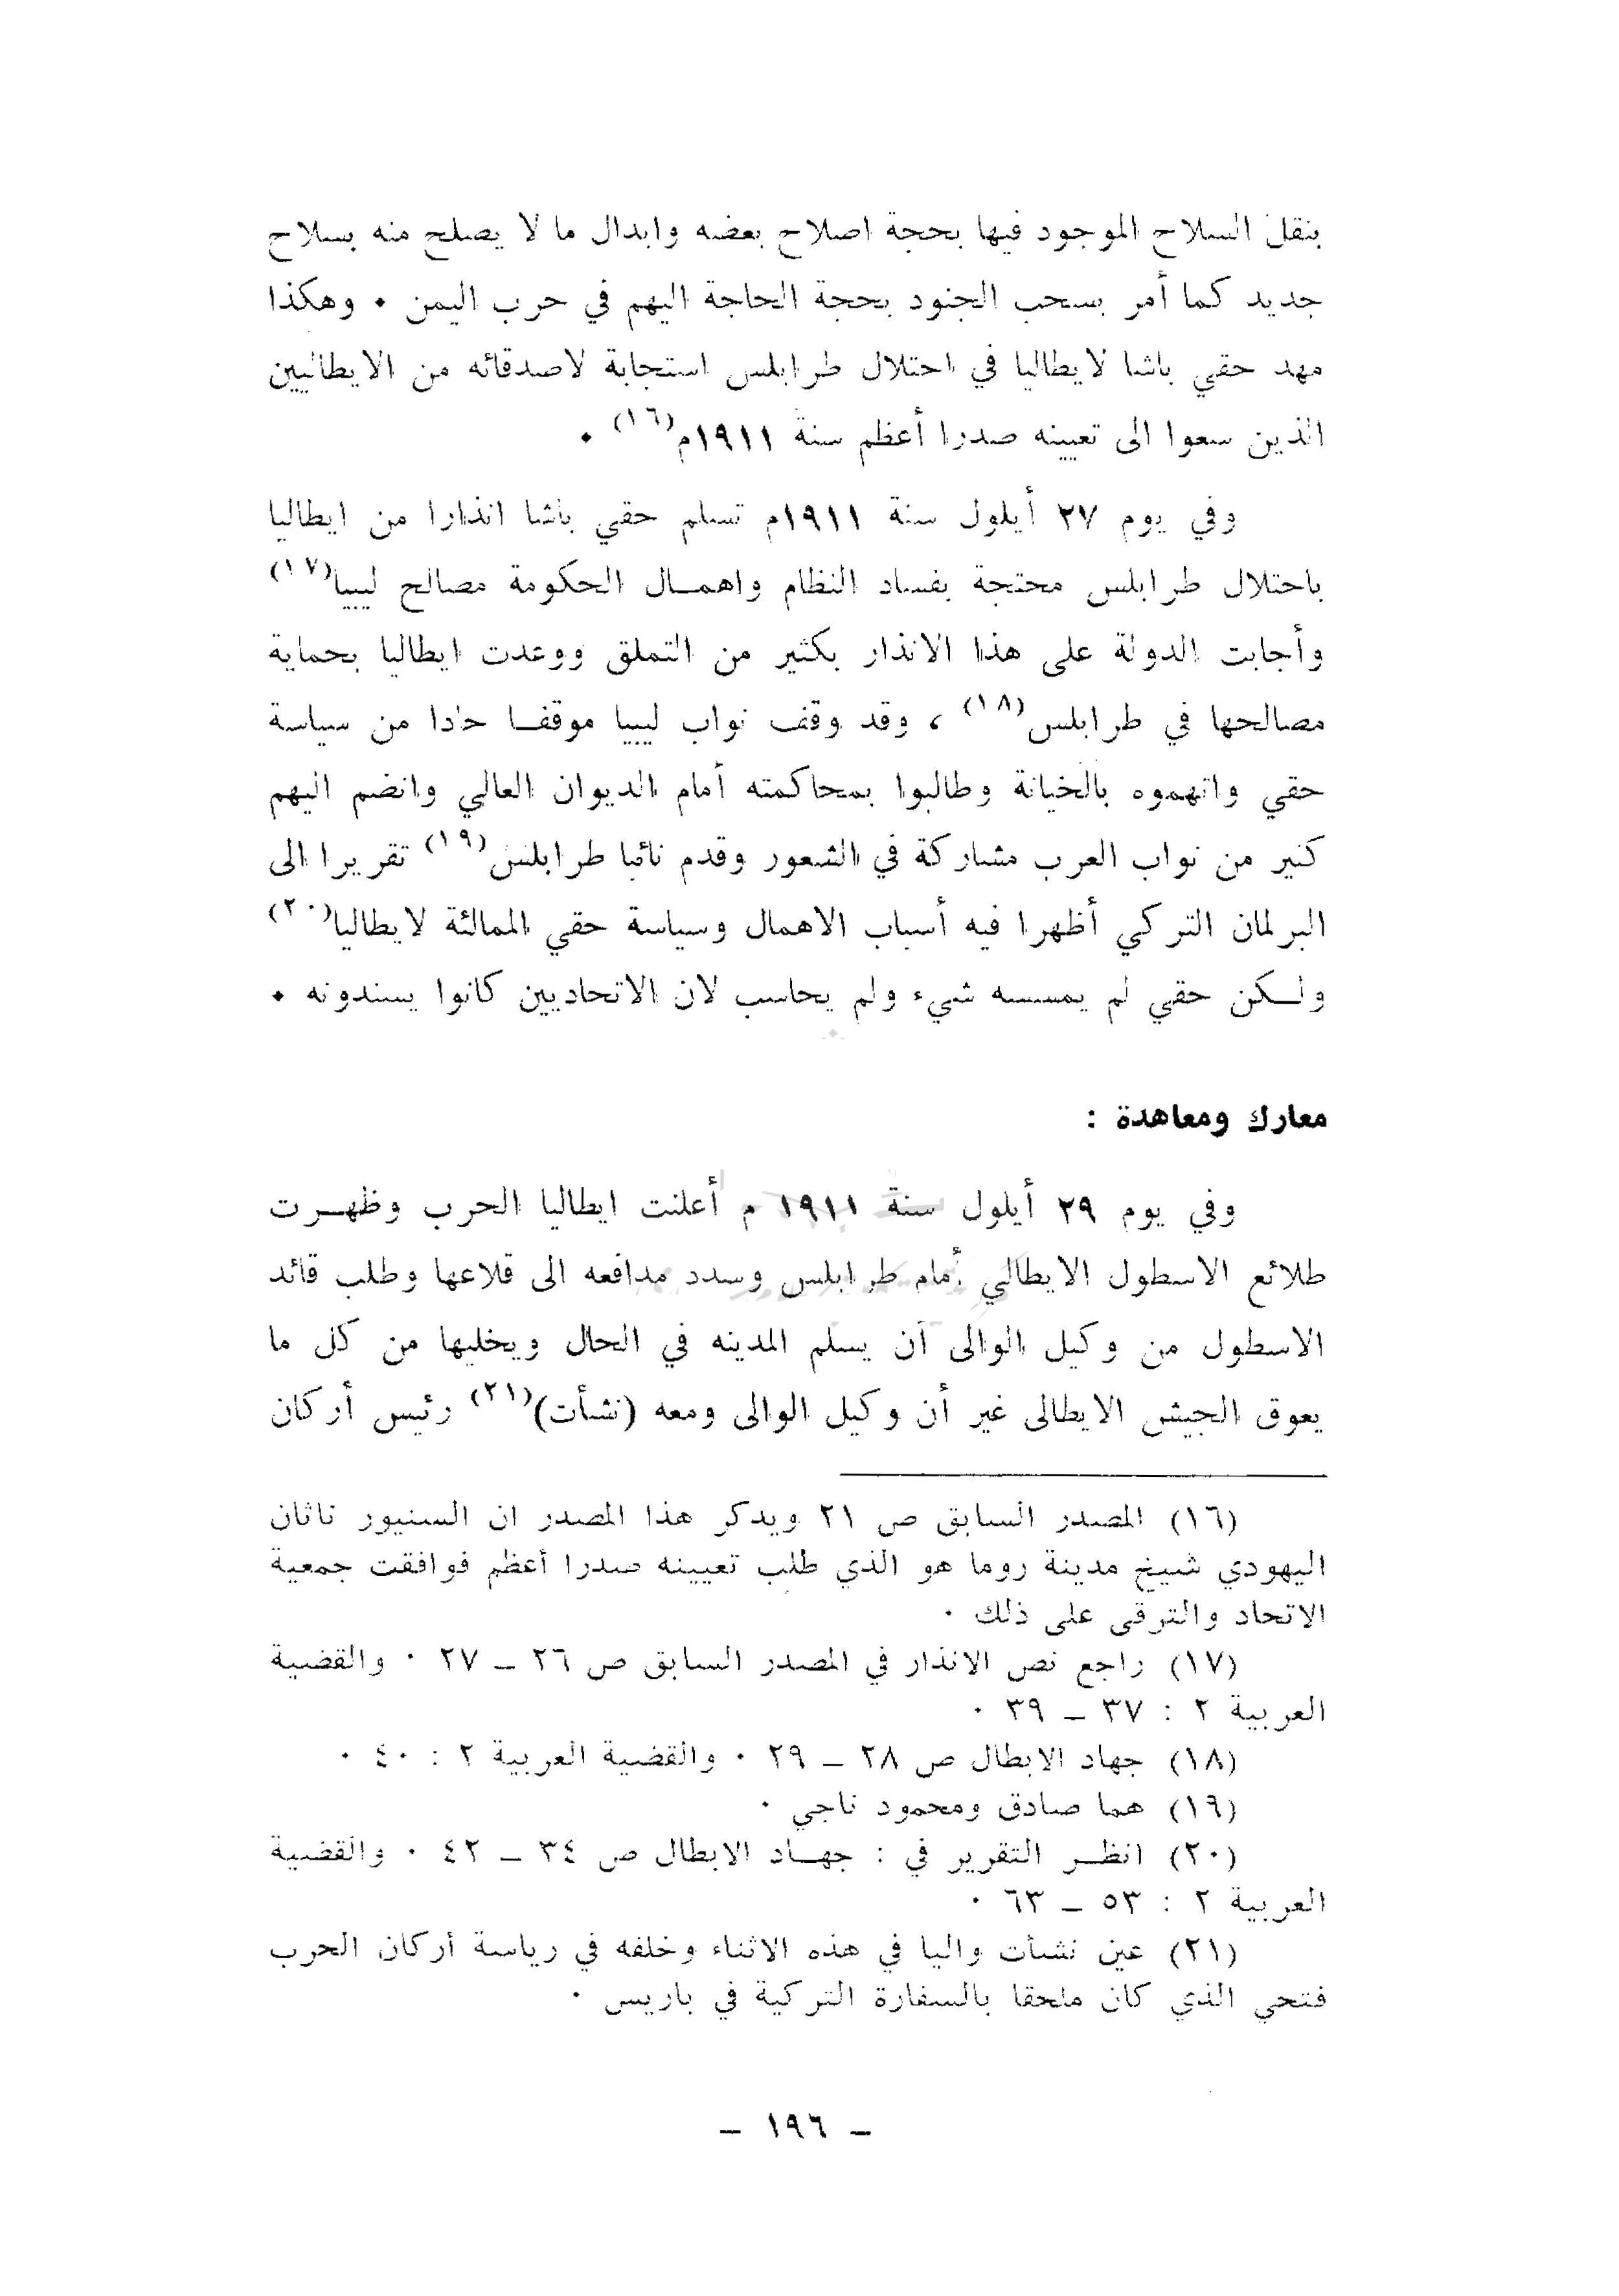 بنقل السلاح الموجود فيها بحجة اصلاح بعضه وابدال ما لا يصلح منه بسلاح
جديد كما أمر بسحب الجنود بحجة الحاجة اليهم في حرب اليمن ٠ وهكذا
مهد حقي باشا لايطاليا في احتلال طرابلس استجابة لاصدقائه من الايطاليين
الذين سعوا الى تعيينه صدرا أعظم سنة ١٩١١م(١٦) ٠
وفي يوم ٢٧ أيلول سنة ١٩١١م تسلم حقي باشا انذارا من ايطاليا
باحتلال طرابلس محتجة بفساد النظام واهمـال الحكومة مصالح ليبيا(١٧)
وأجابت الدولة على هذا الانذار بكثير من التملق ووعدت ايطاليا بحماية
مصالحها في طرابلس(١٨) ، وقد وقف نواب ليبيا موقفـا حادا من سياسة
حقي واتهموه بالخيانة وطالبوا بمحاكمته أمام الديوان العالي وانضم اليهم
كثير من نواب العرب مشاركة في الشعور وقدم نائبا طرابلس(١٩) تقريرا الى
البرلمان التركي أظهرا فيه أسباب الاهمال وسياسة حقي الممالئة لايطاليا(٢٠)
ولـكن حقي لم يمسسه شيء ولم يحاسب لان الاتحاديين كانوا يسندونه ٠
معارك ومعاهدة :
وفي يوم ٢٩ أيلول سنة ١٩١١ م أعلنت ايطاليا الحرب وظهـرت
طلائع الاسطول الايطالي أمام طرابلس وسدد مدافعه الى قلاعها وطلب قائد
الاسطول من وكيل الوالى أن يسلم المدينه في الحال ويخليها من كل ما
يعوق الجيش الايطالى غير أن وكيل الوالى ومعه (نشأت)(٢١) رئيس أركان
(١٦) المصدر السابق ص ٢١ ويدكر هذا المصدر ان السنيور ناثان
اليهودي شيخ مدينة روما هو الذي طلب تعيينه صدرا أعظم فوافقت جمعية
الاتحاد والترقى على ذلك ٠
(١٧) راجع نص الانذار في المصدر السابق ص ٢٦ ــ ٢٧ ٠ والقضية
العربية ٢ : ٣٧ ــ ٣٩ ٠
(١٨) جهاد الابطال ص ٢٨ ــ ٢٩ ٠ والقضية العربية ٢ : ٤٠ ٠
(١٩) هما صادق ومحمود ناجي ٠
(٢٠) انظـر التقرير في : جهـاد الابطال ص ٣٤ ــ ٤٢ ٠ والقضية
العربية ٢ : ٥٣ ــ ٦٣ ٠
(٢١) عين نشأت واليا في هذه الاثناء وخلفه في رياسة أركان الحرب
فتحي الذي كان ملحقا بالسفارة التركية في باريس ٠
ــ ١٩٦ ــ